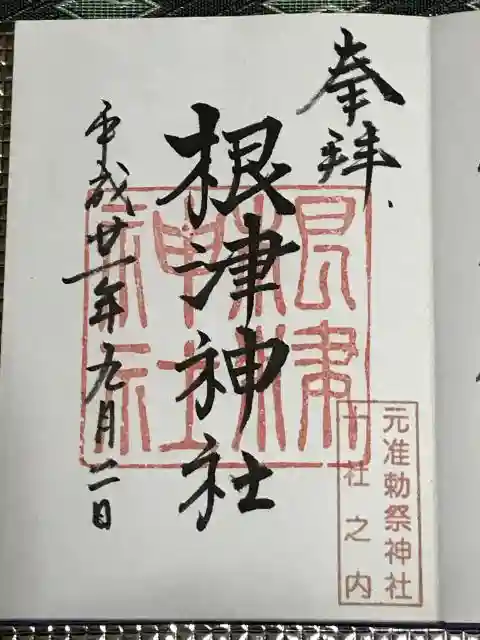 奉拝
根津神社
平成廿一年九月二日
根津神社
元准勅祭神社
十社之内